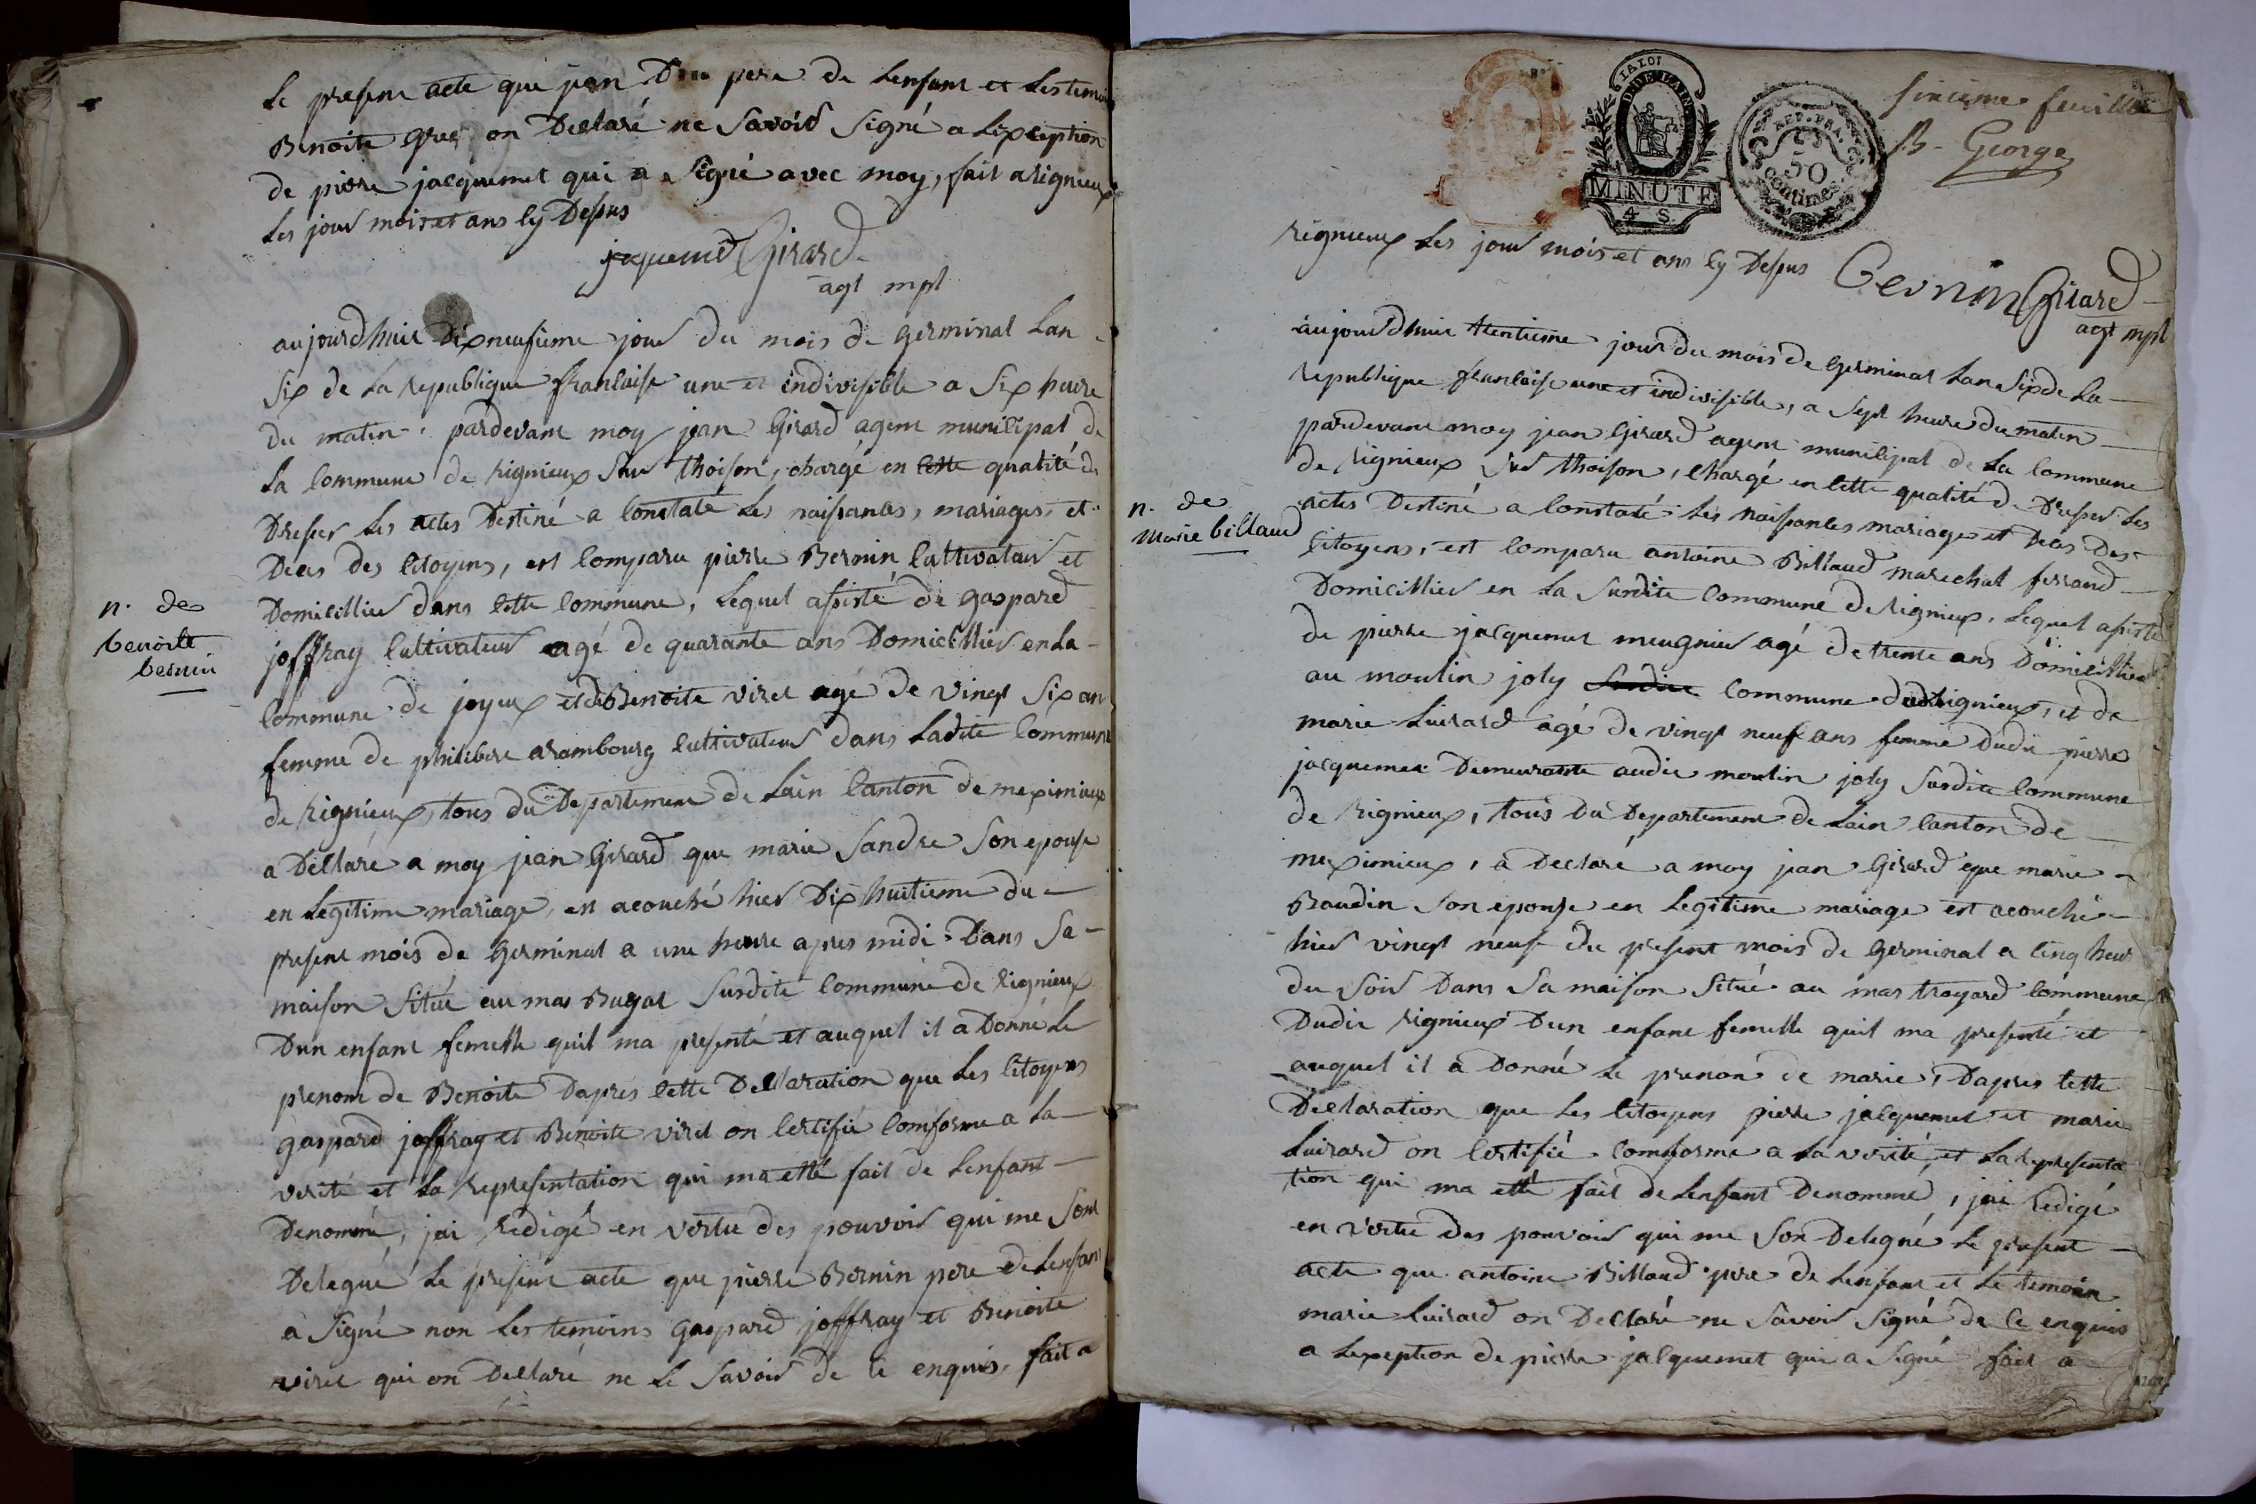 Le present acte que jean pere de Lenfant et Les temoi
Benoite on Declaré ne Savoir Signé a Lexception
de pierre jacquemet qui a Signé avec moy, fait arignieux
Les jour mois et ans Cy Dessus
jaquemet Girard
agt mpl
aujourdhuit Dixneufieme jour du mois de germinal Lan
Six de La republique francaise une et indivisible a Six heure
Du matin, pardevant moy jean Girard agent municipal de
La Commune de rignieux Sur thoison, chargé en cette qualité de
Dresser Les actes Destiné a Constaté Les naissances, mariages, et
Deces des citoyens, est Comparu pierre Bernin Cultivateur et
Domicillier dans Cette Commune, Lequel assisté de gaspard
joffray Cultivateur agé de quarante ans Domicillier en La
Commune de joyeux et de Benoite viret agé de vingt Six an
femme de philibert arambourg Cultivateur dans Ladite Commune
de rignieux, tous du Departement de Lain Canton de meximieux
a Declaré a moy jean Girard que marie Sandre Son epouse
en Legitime mariage, en acouché hier Dix huitieme du
present mois de germinal a une heure apres midi Dans Sa
maison Situé au mas Bugat Susdite Commune de rignieux
Dun enfant femelle quil ma presenté et auquel il a Donné Le
prenom de Benoite Dapres Cette Declaration que Les Citoyens
gaspard joffray et Benoite viret on Certifié Comforme a La
verité et La representation qui ma etté fait de Lenfant
Denommé, jai redigé en vertu des pouvoir qui me Sont
Delegué Le present acte que pierre Bernin pere de Lenfant
a Signé non Les temoins gaspard joffray et Benoite
viret qui on Declaré ne Le Savoir de Ce enquis, fait a
n. de
benoite
bernin
Sixieme feuillet
B. George
LA LOI
MINUTE
4 S.
REP. FRA.
50
centimes
rignieux Les jour mois et ans Cy Dessus
Bernin Girard
agt mpl
aujourdhuit trentieme jour du mois de Germinal Lan Six de La
republique francaise une et indivisible, a Sept heure du matin
pardevant moy jean Girard agent municipal de La Commune
de rignieux Sur thoison, Chargé en Cette qualité de Dresser Les
actes Destiné a Constaté Les naissances mariages et Deces des
Citoyens, est Comparu antoine Billaud marechal ferrand
Domicillier en La Susdite Commune de rignieux, Lequel assisté
de pierre jacquemet meugnier agé de trente ans Domicillier
au moulin joly Susdite Commune dud rignieux, et de
marie Luirard agé de vingt neuf ans femme Dudit pierre
jacquemet Demeurante audit moulin joly Susdite Commune
de rignieux, tous du Departement de Lain Canton de
meximieux, a Declaré a moy jean Girard que marie
Baudin Son epouse en Legitime mariage est acouché
hier vingt neuf du present mois de Germinal a Cinq heur
du Soir Dans Sa maison Situé au mas troyard Commune
Dudit rignieux Dun enfant femelle quil ma presenté et
auquel il a Donné Le prenon de marie, Dapres Cette
Declaration que Les Citoyens pierre jacquemet et marie
Luirard on Certifié Comforme a La verité, et La representa
tion qui ma etté fait de Lenfant Denommé, jai redigé
en vertu Des pouvoir qui me Son Delegué Le present
acte que antoine Billaud pere de Lenfant et Le temoin
marie Luirard on Declaré ne Savoir Signé de Ce enquis
a Lexeption de pierre jacquemet qui a Signé fait a
n. de
marie billaud